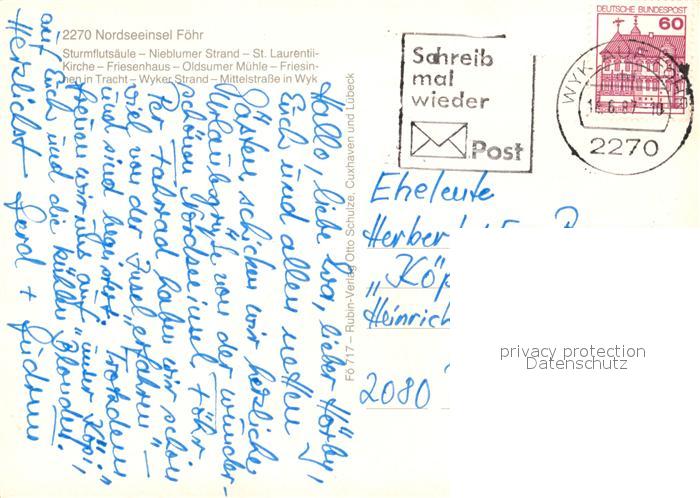 2270 Nordseeinsel Föhr
Sturmflutsäule – Nieblumer Strand – St. Laurentii-
Kirche – Friesenhaus – Oldsumer Mühle – Friesin-
nen in Tracht – Wyker Strand – Mittelstraße in Wyk
Hallo, liebe Eva, lieber Herby,
Euch und allen netten
Gästen, schicken wir herzliche
Urlaubsgrüße von der wunder-
schönen Nordseeinsel Föhr
Per Fahrrad haben wir schon
viel von der Insel „erfahren"
und sind begeistert. Trotzdem
freuen wir uns auf „unser Köpi",
auf Euch und die kühlen Blonden!
Herzlichst Gerd + Gudrun
Fö 717 – Rubin-Verlag Otto Schulze, Cuxhaven und Lübeck
Schreib
mal
wieder
Post
DEUTSCHE BUNDESPOST
60
WYK
.6.87
2270
Eheleute
Herber
„Köp
Heinrich
2080
privacy protection
Datenschutz